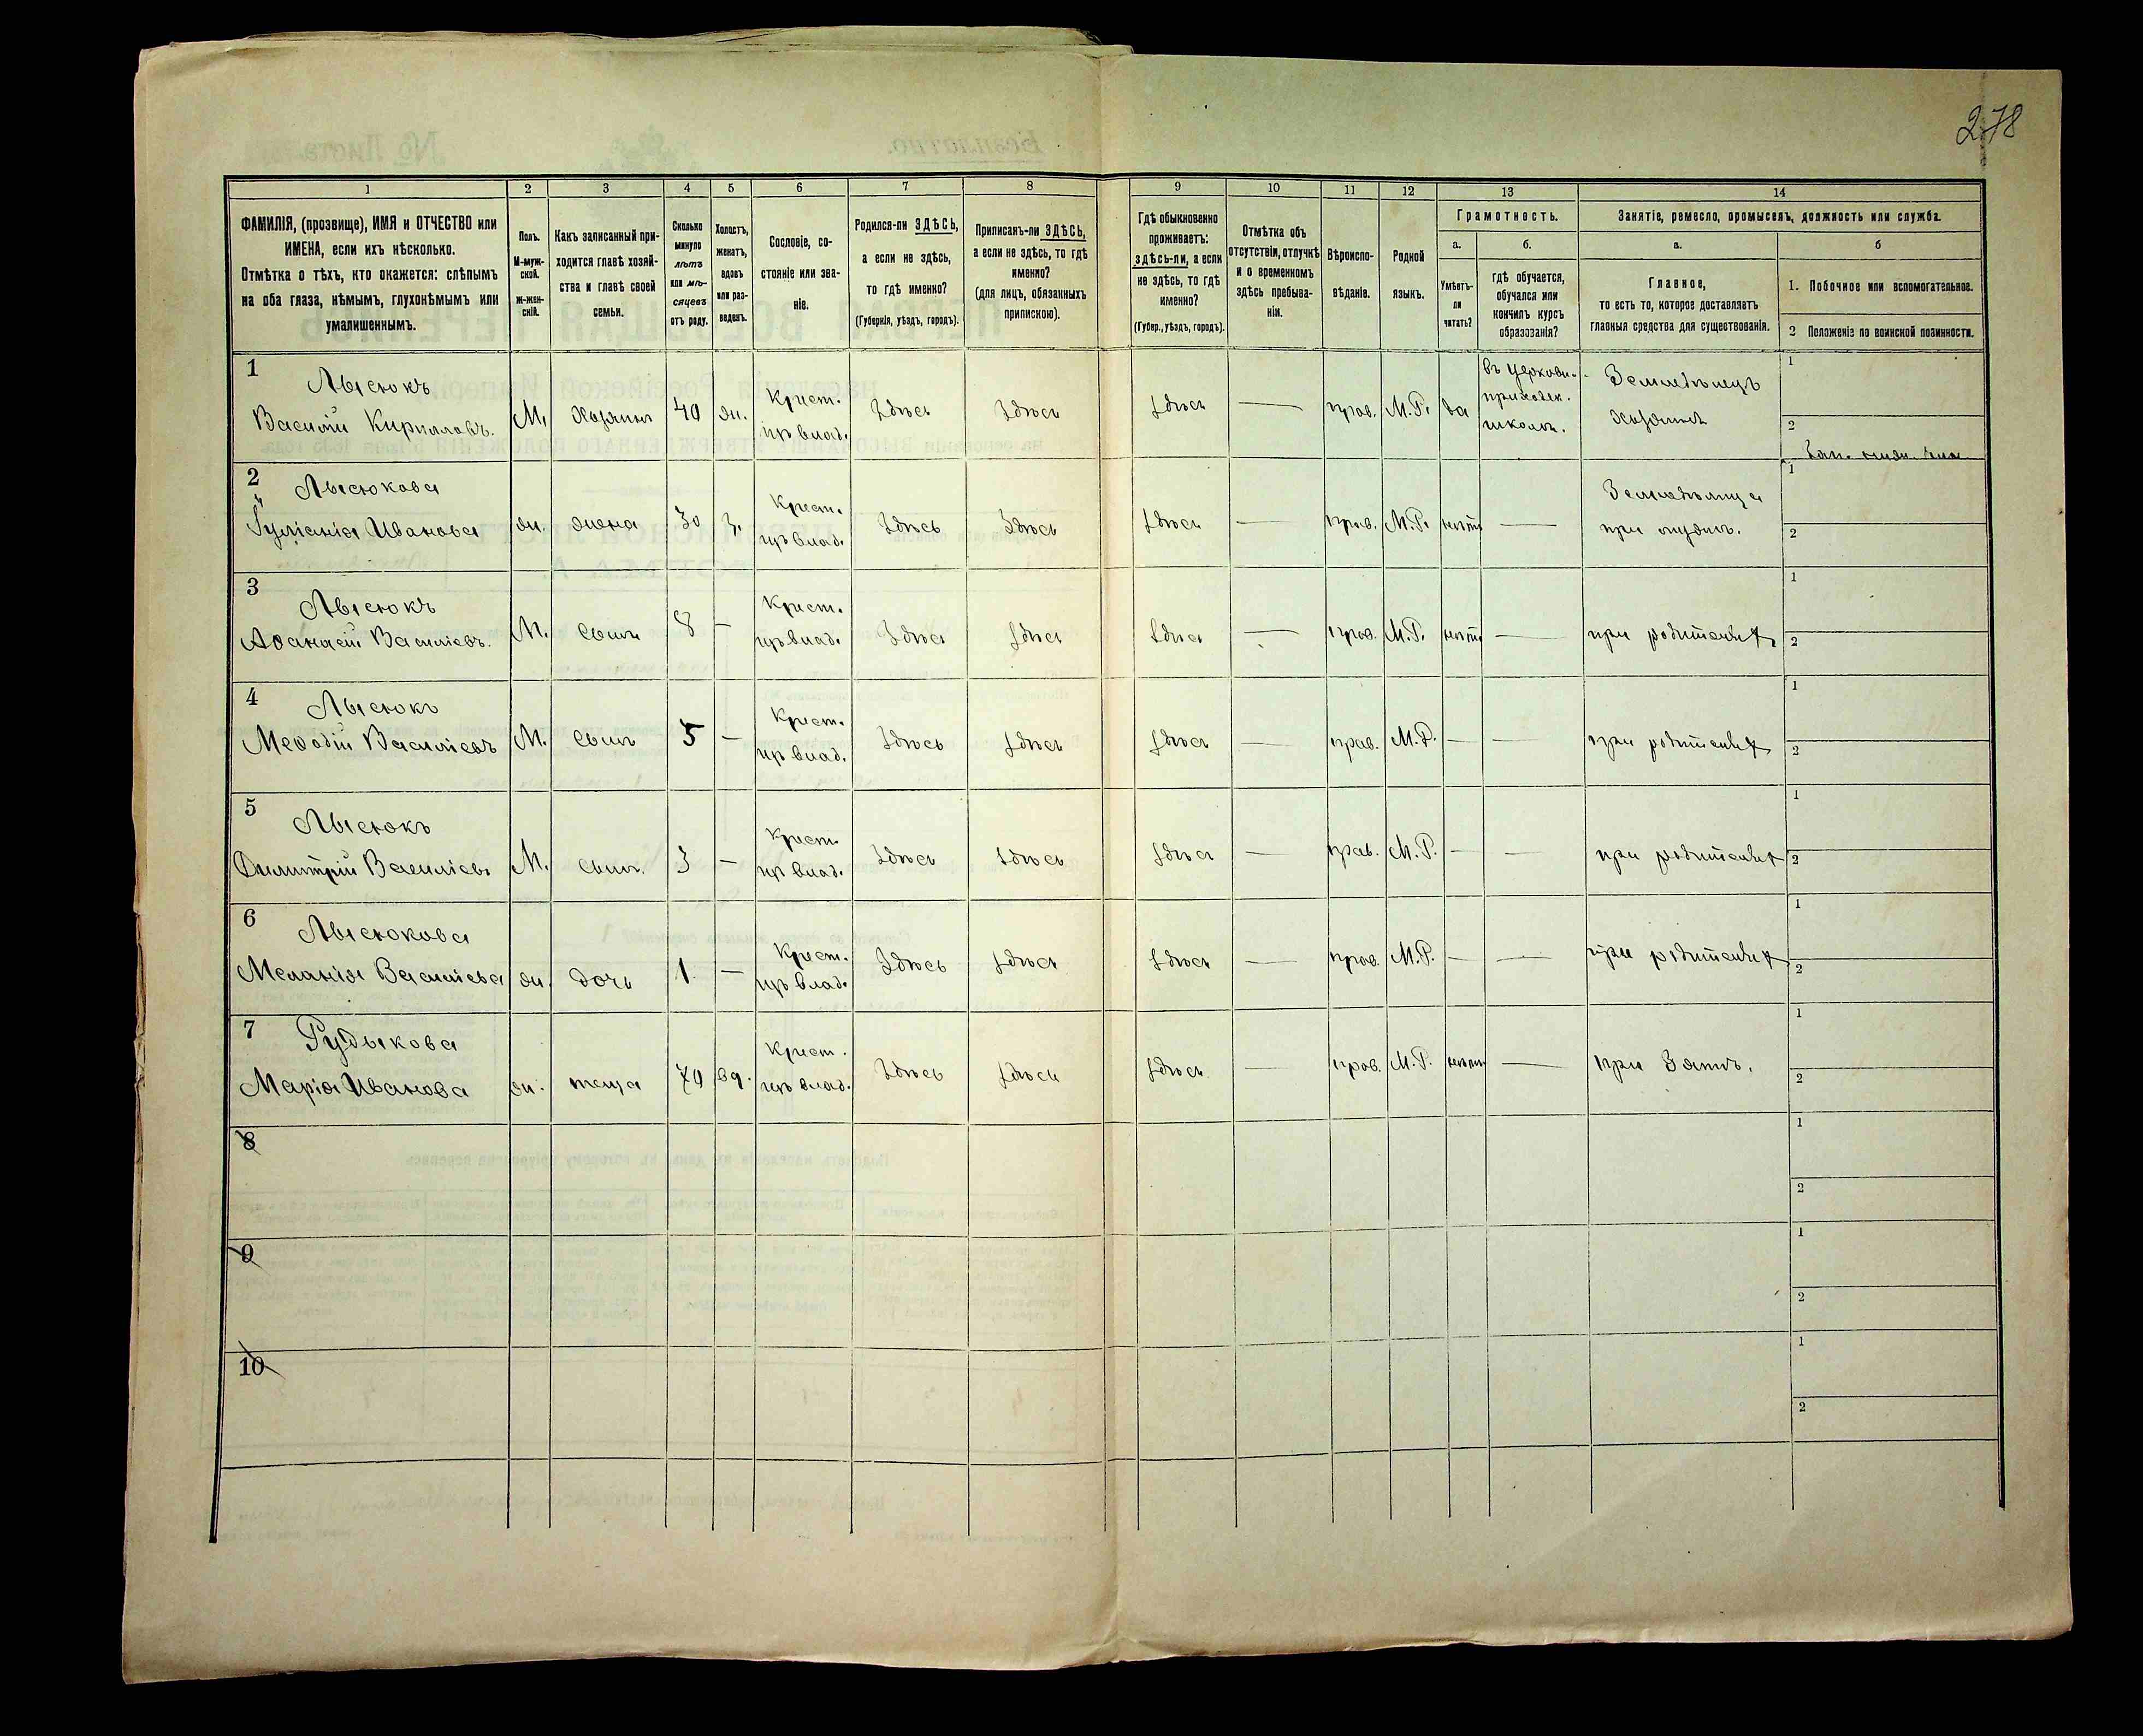 278
1 2 3 4 5 6 7 8 9 10 11 12 13 14
ФАМИЛІЯ, (прозвище), ИМЯ и ОТЧЕСТВО или
ИМЕНА, если ихъ нѣсколько.
Отмѣтка о тѣхъ, кто окажется: слѣпымъ
на оба глаза, нѣмымъ, глухонѣмымъ или
умалишеннымъ.
Полъ.
М-муж-
ской.
ж-жен-
скій.
Какъ записанный при-
ходится главѣ хозяй-
ства и главѣ своей
семьи.
Сколько
минуло
лѣтъ
или мѣ-
сяцевъ
отъ роду.
Холостъ,
женатъ,
вдовъ
или раз-
веденъ.
Сословіе, со-
стояніе или зва-
ніе.
Родился-ли ЗДѢСЬ,
а если не здѣсь,
то гдѣ именно?
(Губернія, уѣздъ, городъ).
Приписанъ-ли ЗДѢСЬ,
а если не здѣсь, то гдѣ
именно?
(для лицъ, обязанныхъ
припискою).
Гдѣ обыкновенно
проживаетъ:
здѣсь-ли, а если
не здѣсь, то гдѣ
именно?
(Губер., уѣздъ, городъ).
Отмѣтка объ
отсутствіи, отлучкѣ
и о временномъ
здѣсь пребыва-
ніи.
Вѣроиспо-
вѣданіе.
Родной
языкъ.
Грамотность.
а.
Умѣетъ-
ли
читать?
б.
гдѣ обучается,
обучался или
кончилъ курсъ
образованія?
Занятіе, ремесло, промыселъ, должность или служба.
а.
Главное,
то есть то, которое доставляетъ
главныя средства для существованія.
б
1. Побочное или вспомогательное.
2 Положеніе по воинской повинности.
1
Лысюкъ
Василій Кирилловъ.
М.
Хозяинъ
40
ж.
Крест.
из влад.
Здѣсь
Здѣсь
здѣсь
—
прав.
М.Р.
да
въ церковн.
приходск.
школѣ.
Земледѣлецъ
хозяинъ
1
2
2
Лысюкова
Іуліанія Иванова
ж.
жена
30
з.
Крест.
из влад.
Здѣсь
Здѣсь
здѣсь
—
прав.
М.Р.
нѣтъ
—
Земледѣлица
при мужѣ.
1
2
3
Лысюкъ
Аѳанасій Василіевъ.
М.
сынъ
8
—
Крест.
из влад.
Здѣсь
здѣсь
здѣсь
—
прав.
М.Р.
нѣтъ
—
при родителяхъ
1
2
4
Лысюкъ
Меѳодій Василіевъ
М.
сынъ
5
—
Крест.
из влад.
Здѣсь
здѣсь
здѣсь
—
прав.
М.Р.
—
—
при родителяхъ
1
2
5
Лысюкъ
Димитрій Василіевъ
М.
сынъ.
3
—
Крест.
из влад.
Здѣсь
здѣсь
здѣсь
—
прав.
М.Р.
—
—
при родителяхъ
1
2
6
Лысюкова
Меланія Василіева
ж.
дочь
1
—
Крест.
из влад.
Здѣсь
здѣсь
здѣсь
—
прав.
М.Р.
—
—
при родителяхъ
1
2
7
Рудыкова
Марія Иванова
ж.
теща
70
вд.
Крест.
из влад.
Здѣсь
здѣсь
здѣсь
—
прав.
М.Р.
нѣтъ
—
при зятѣ.
1
2
8
1
2
9
1
2
10
1
2